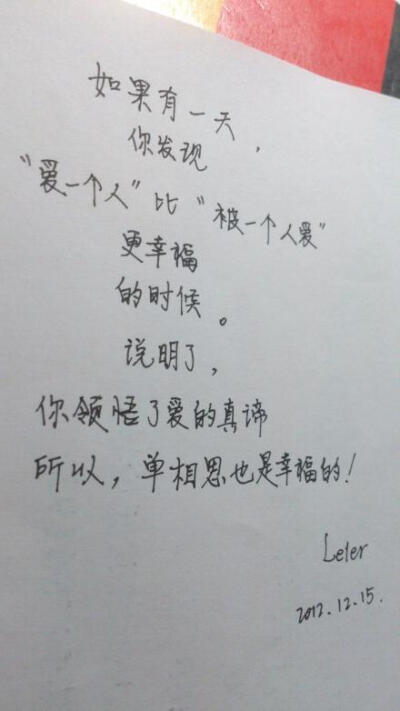 如果有一天，
你发现
“爱一个人”比“被一个人爱”
更幸福
的时候。
说明了，
你领悟了爱的真谛
所以，单相思也是幸福的！
Leler
2012.12.15.